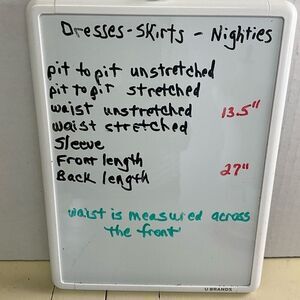 Dresses-Skirts - Nighties
pit to pit unstretched
pit to pit stretched
waist unstretched 13.5"
waist stretched
Sleeve
Front length
Back length 27"
waist is measured across
the front
U BRANDS